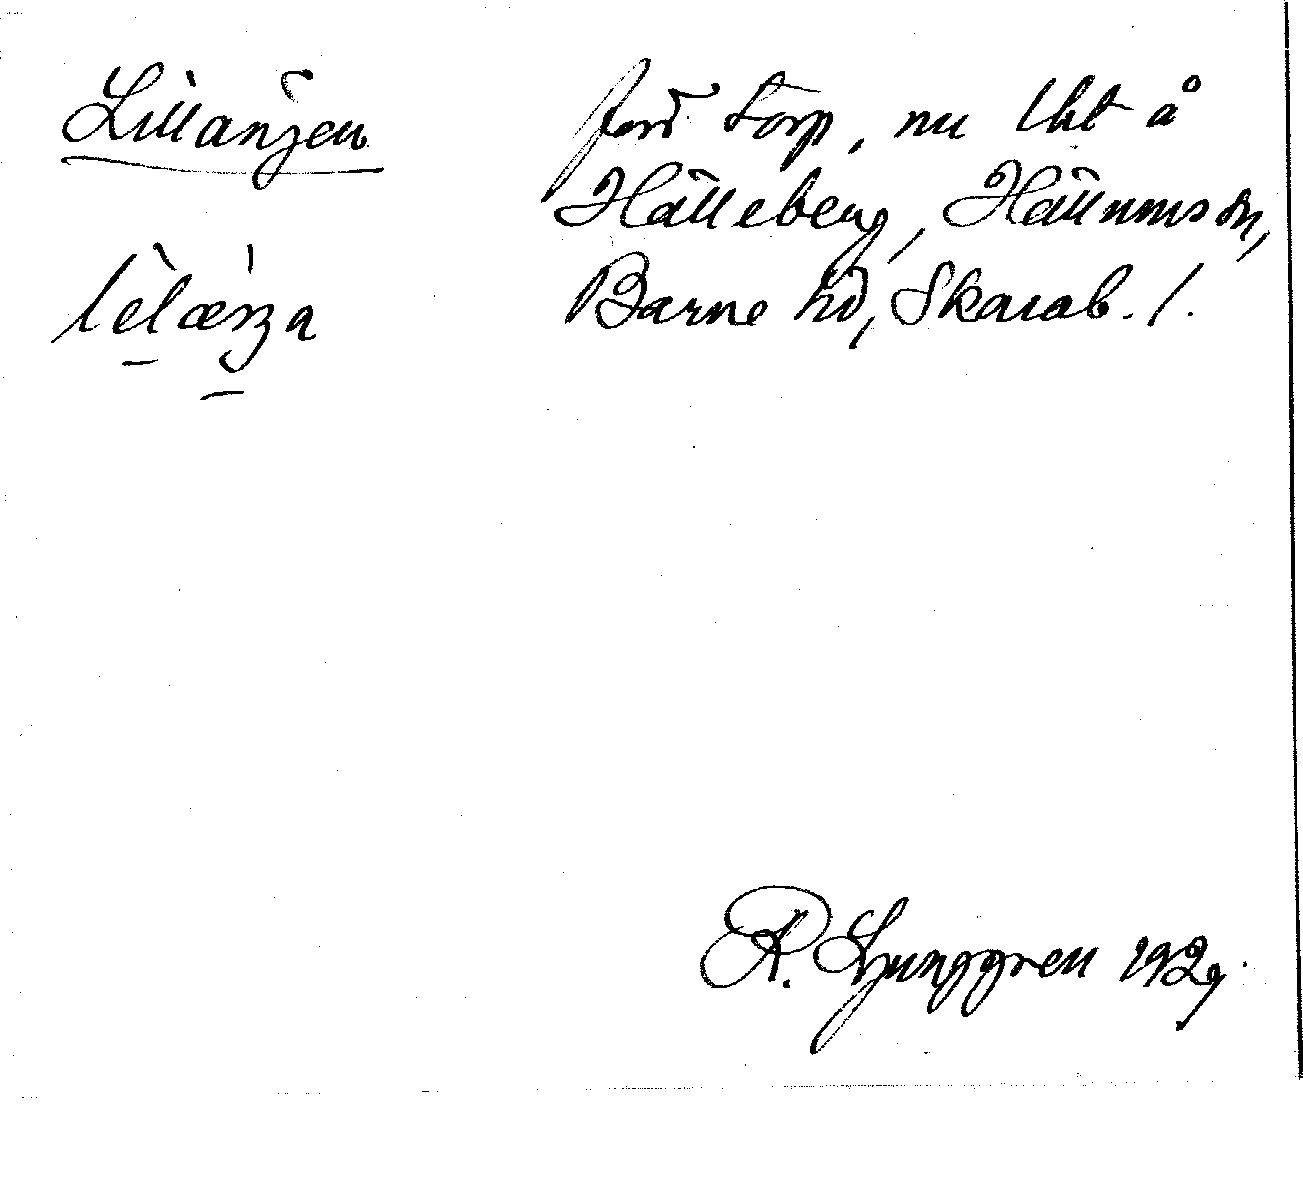 Lillängen
förd torp, nu lht å
Hälleberg, Hällumssdn,
Barne hd, Skarab. l.
R. Ljunggren 1929.